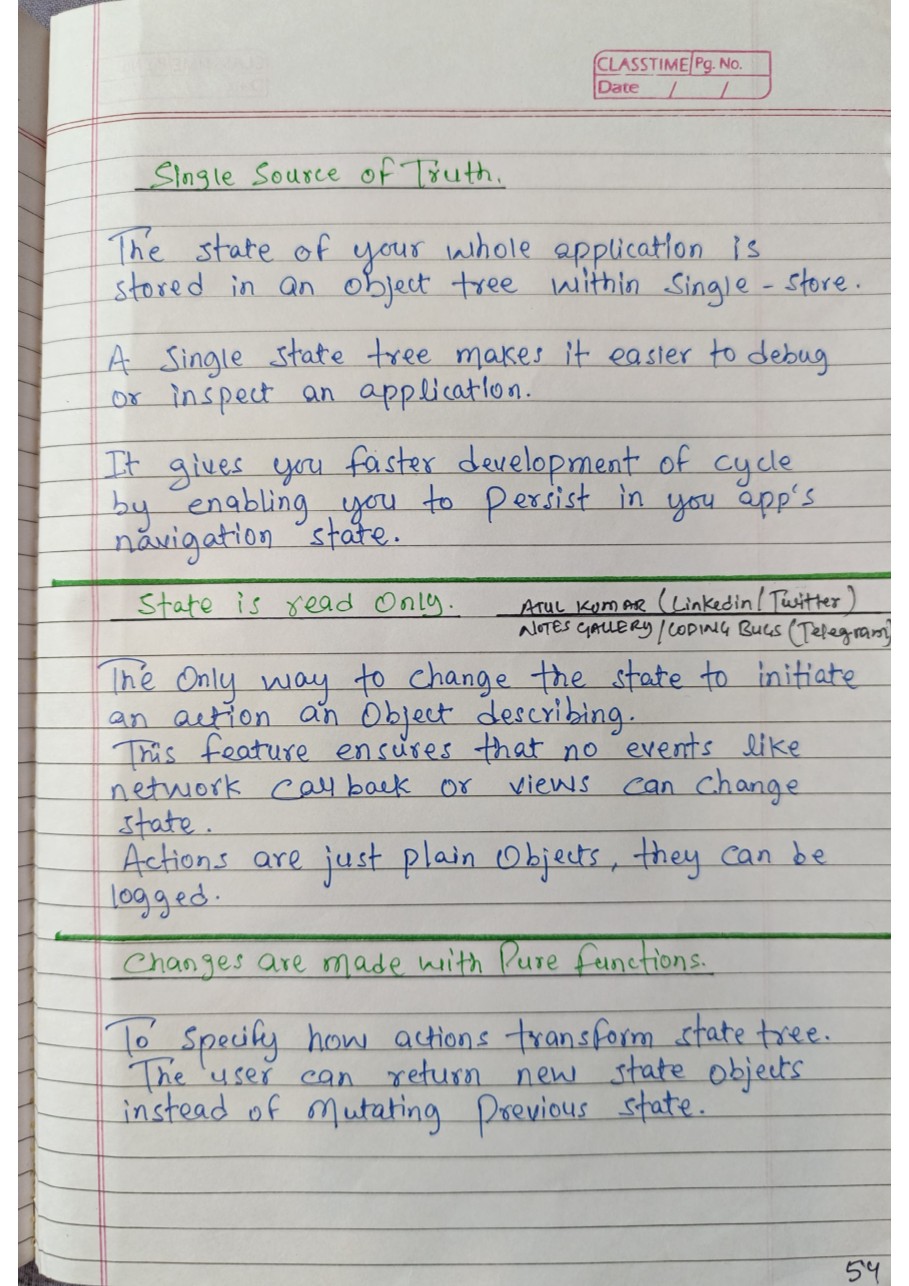 CLASSTIME Pg. No.
Date / /
Single Source of Truth.
The state of your whole application is
stored in an object tree within single - store.
A single state tree makes it easier to debug
or inspect an application.
It gives you faster development of cycle
by enabling you to Persist in you app's
navigation state.
State is read Only. ATUL KUMAR (Linkedin/Twitter)
NOTES GALLERY/CODING BUGS (Telegram)
The Only way to change the state to initiate
an action an Object describing.
This feature ensures that no events like
network call back or views can change
state.
Actions are just plain Objects, they can be
logged.
Changes are made with Pure functions.
To Specify how actions transform state tree.
The user can return new state objects
instead of Mutating Previous state.
54